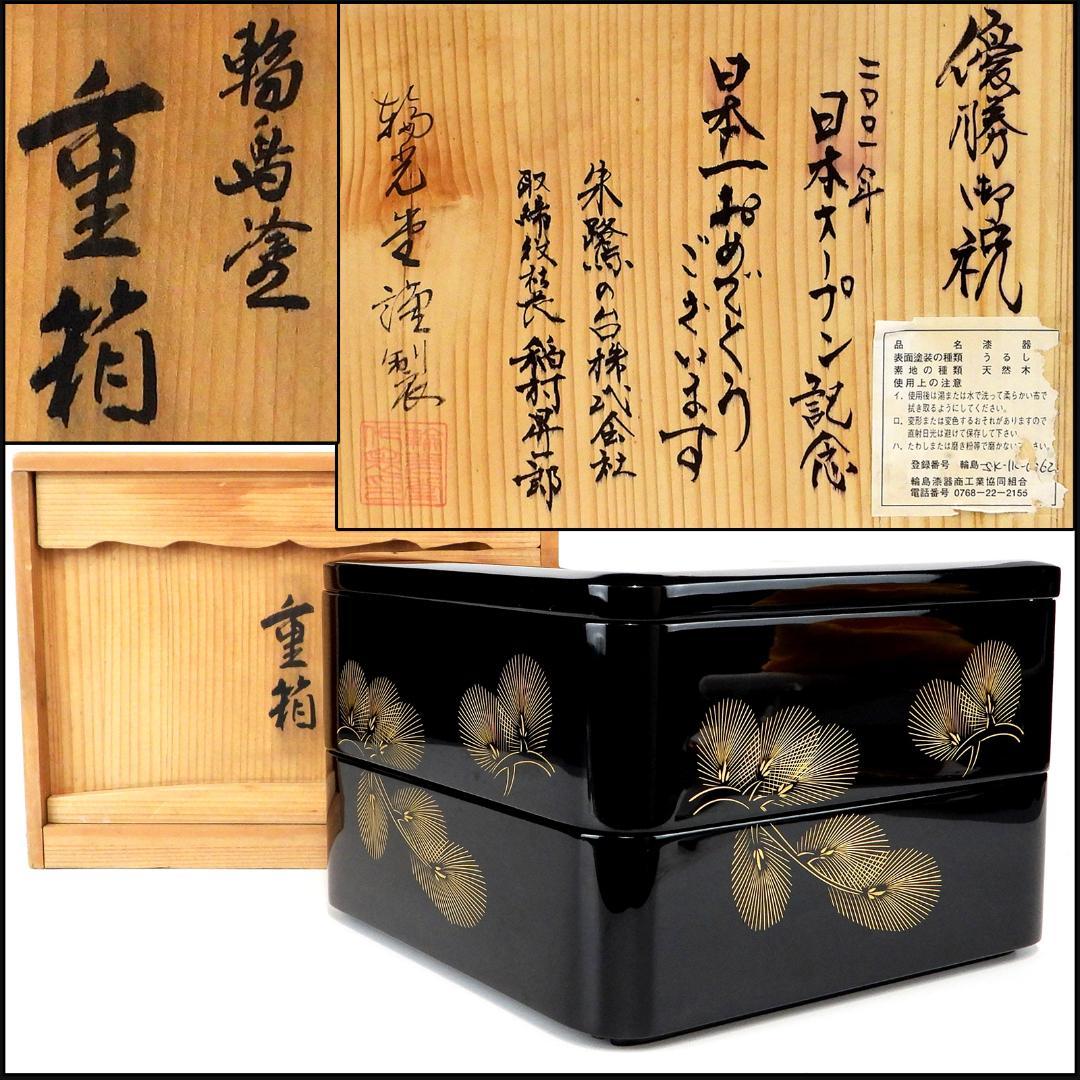 輪島塗
重箱
優勝御祝
二〇〇一年
日本オープン記念
日本一おめでとう
ございます
朱鷺の台株式会社
取締役社長 稲村昇一郎
輪光堂謹製
品名 漆器
表面塗装の種類 うるし
素地の種類 天然木
使用上の注意
イ. 使用後は湯または水で洗って柔らかい布で
拭き取るようにしてください。
ロ. 変形または変色するおそれがありますので
直射日光は避けて保存して下さい。
ハ. たわしまたは磨き粉等で磨かない さい。
登録番号 輪島
輪島漆器商工業協同組合
電話番号 0768-22-2155
重箱